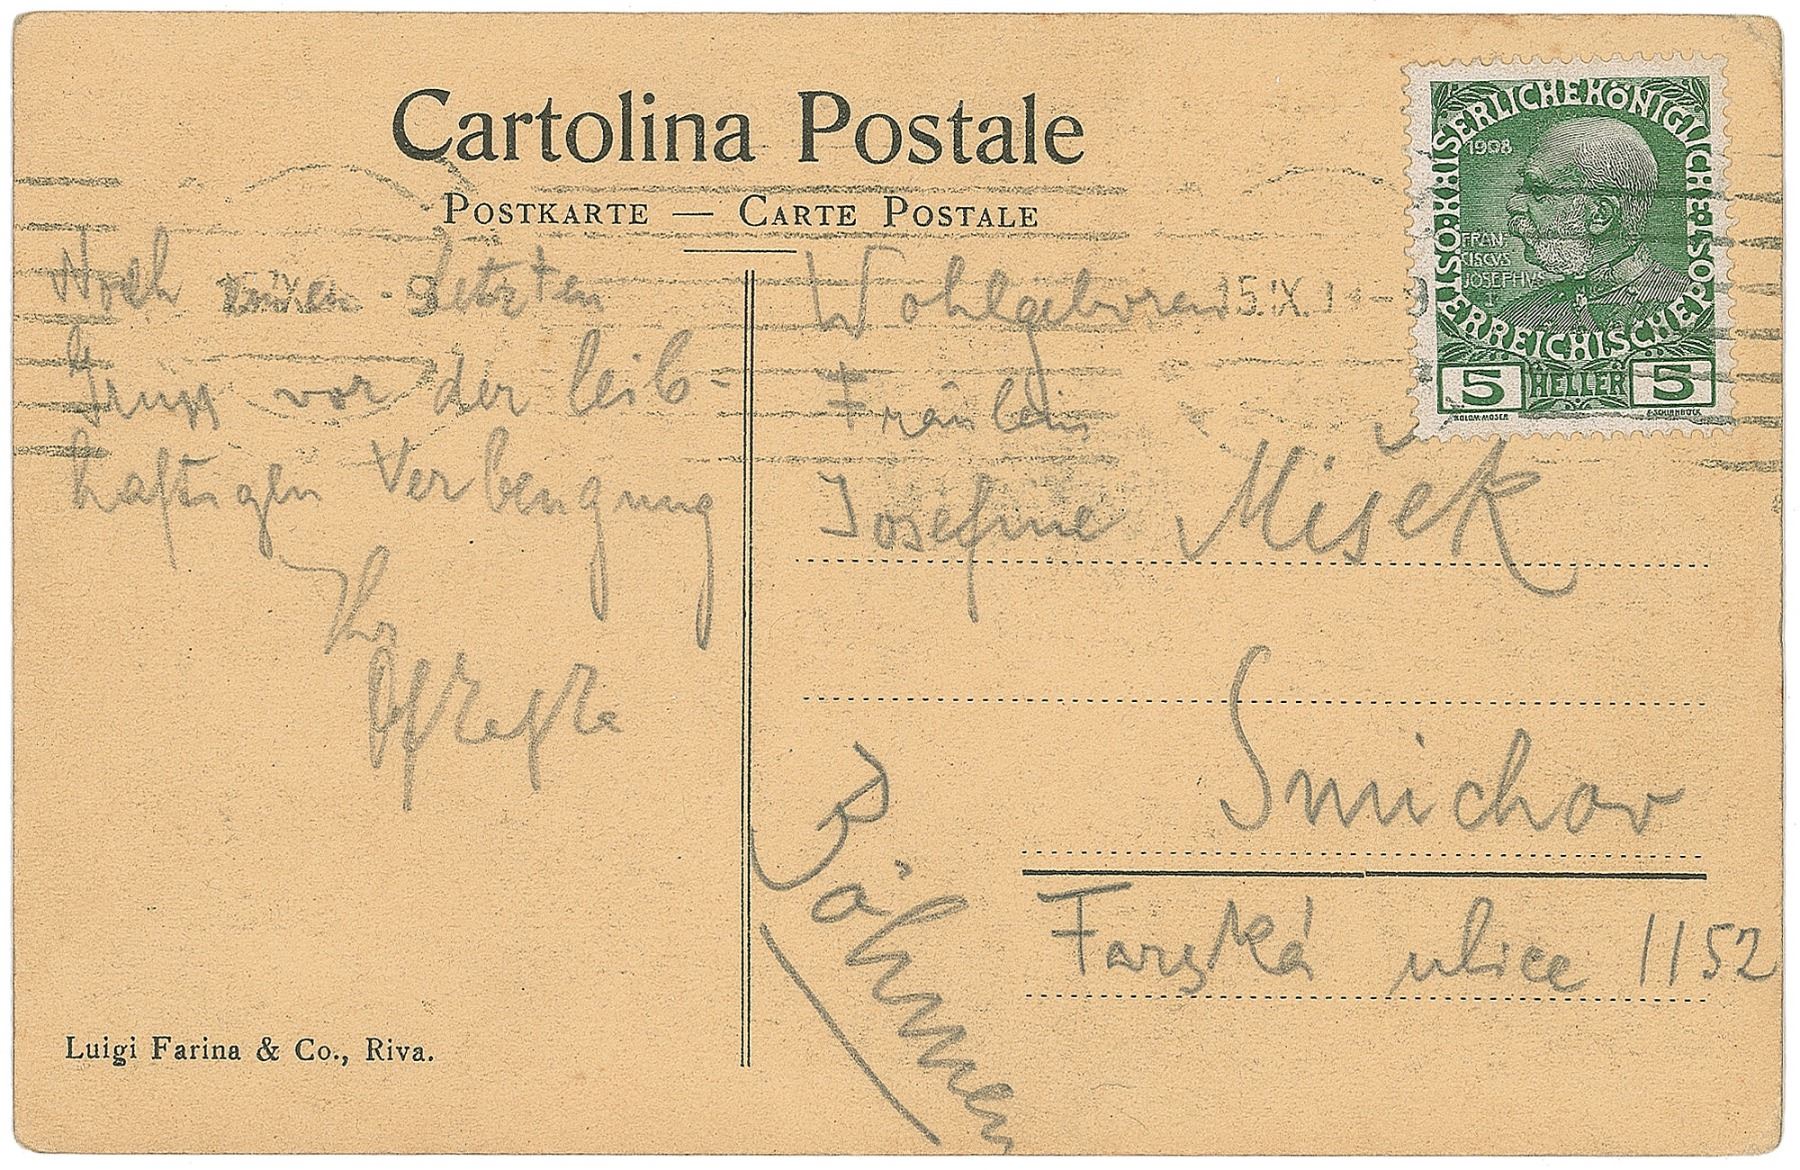 Cartolina Postale
POSTKARTE — CARTE POSTALE
Noch einen letzten
Gruss vor der leib-
haftigen Verbeugung
Ihr
Wohlgeboren
Fräulein
Josefine Mišek
Smichov
Farská ulice 1152
Böhmen
15.IX.1
KAISERLICHE KÖNIGLICHE ÖSTERREICHISCHE POST
1908
FRAN-
CISCVS
JOSEPHVS
I
5 HELLER 5
KOLOM. MOSER
F. SCHIRNBÖCK
Luigi Farina & Co., Riva.